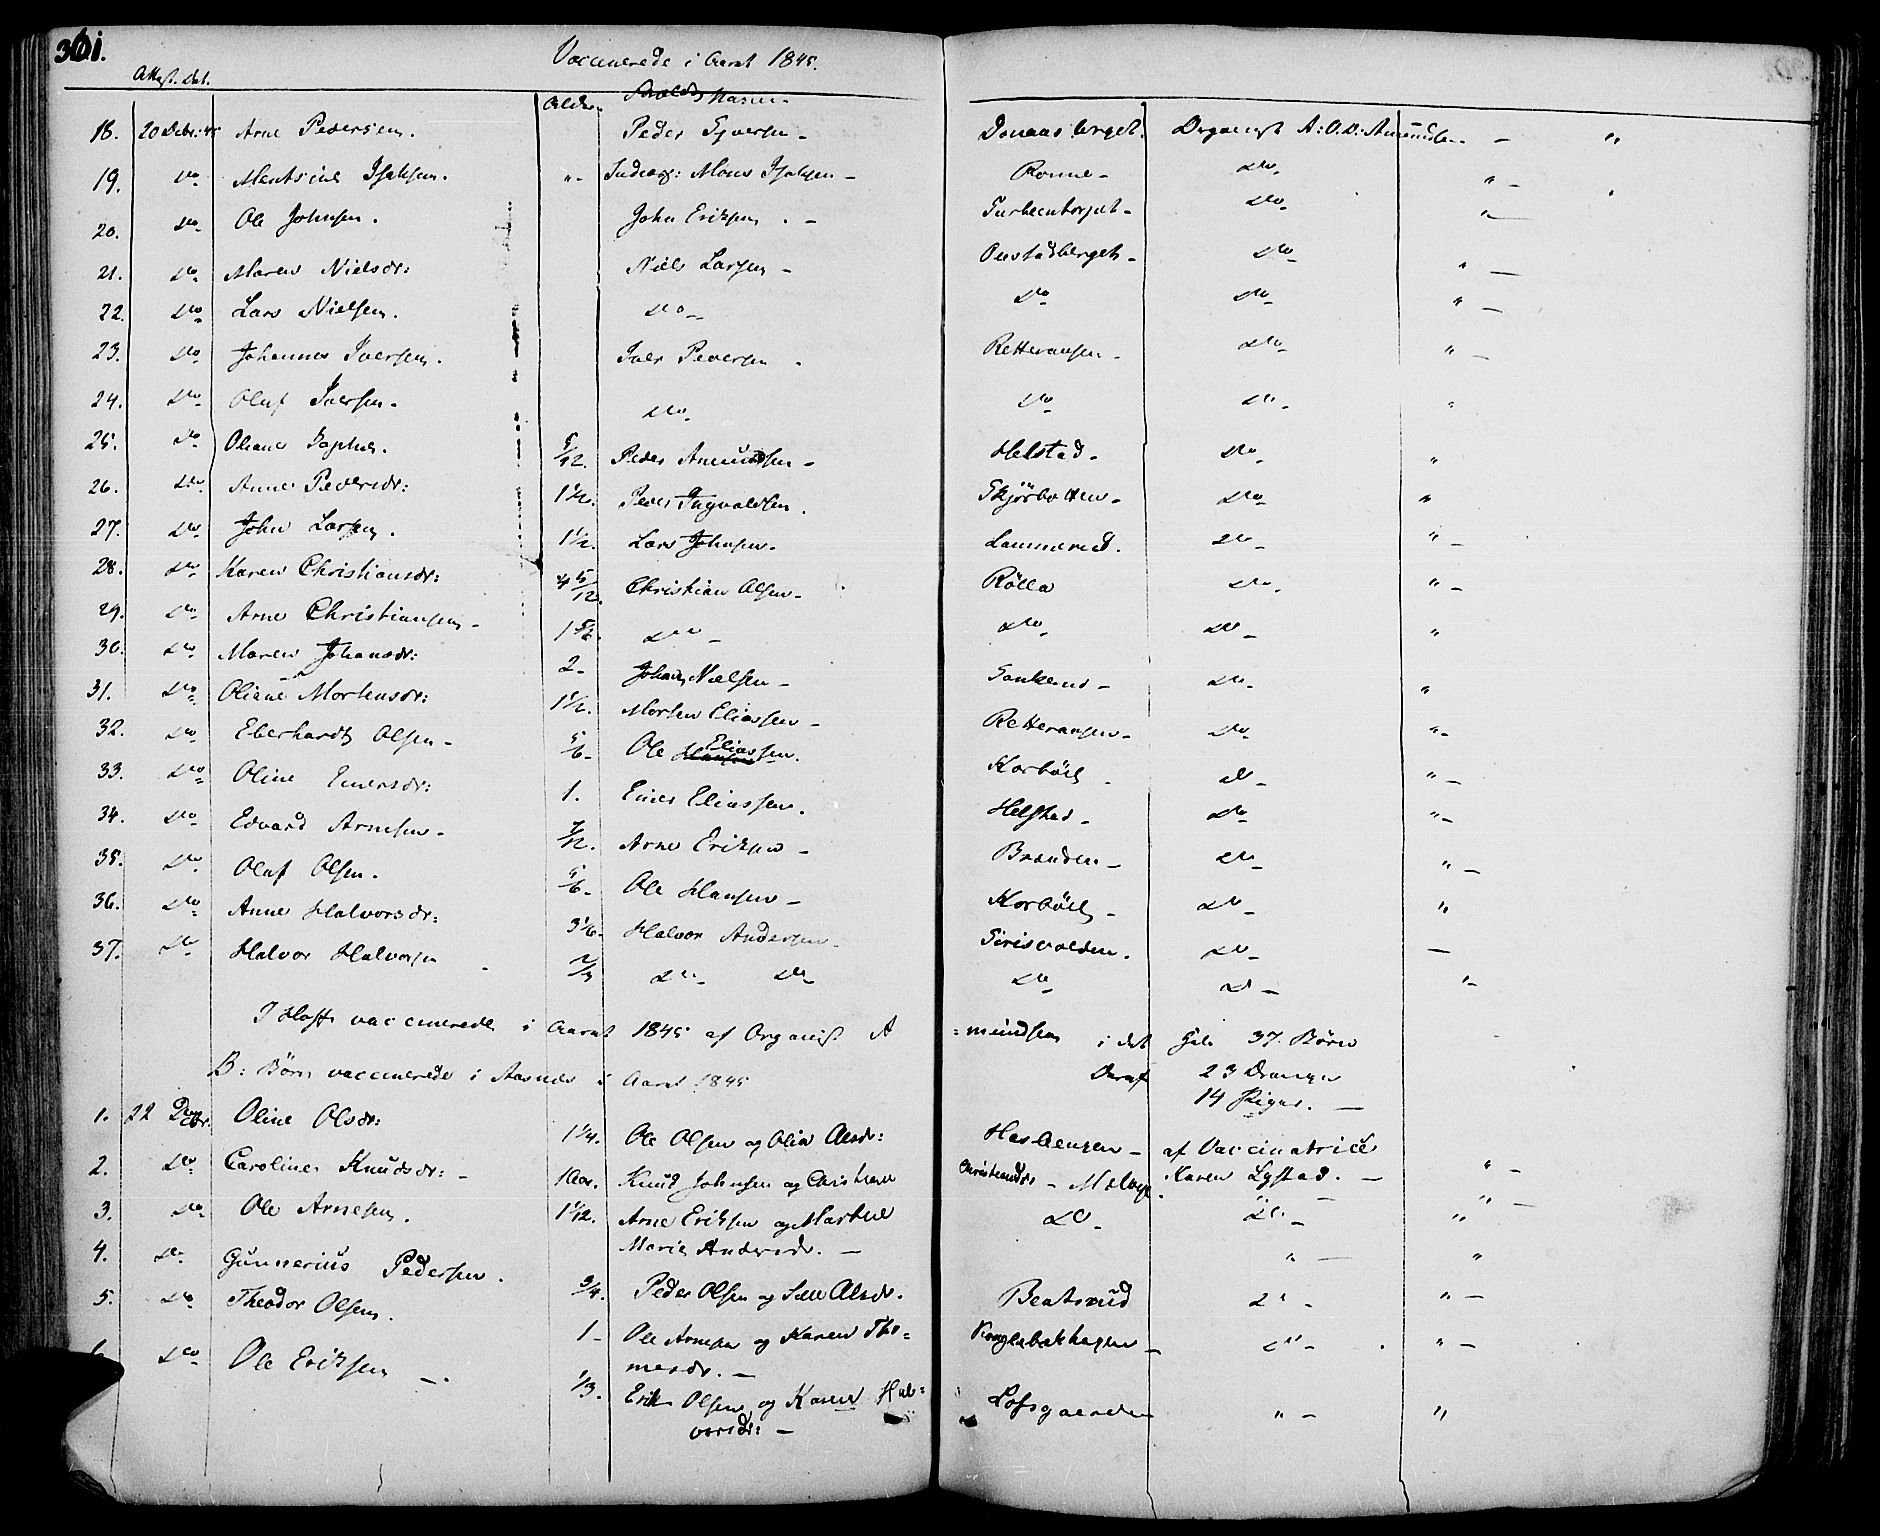 361.
Vaccinerede i Aaret 1845.
Attest. Dat.
Alder.
18. 20 Debr: 45 Arne Pedersen. Peder Sjversen - Donaasberget. Organist A: O. D: Amundsen. - "
19. Do Mentsine Isaksen. "- Inderst: Mons Isaksen - Ronne - Do- " -
20. Do- Ole Johnsen. John Eriksen. - Do- "
21. Do- Maren Nielsdr: Niels Larsen - Onstadberget - Do- " -
22. Do- Lars Nielsen. Do- Do Do- " -
23. Do- Johannes Iversen. Iver Pedersen - Retteraasen - Do- " -
24. Do- Oluf Iversen. Do- Do- Do- "
25. Do- Oliane 5/12. Peder Amundsen - Helstad - Do- "
26. Do- Anne Pedersdr: 1 1/2. Peder Ingvaldsen. Skjørbotten - Do- "
27. Do- John Larsen. 1 1/2. Lars Johnsen. Lammerud. Do- " -
28. Do- Karen Christiansdr: 4 5/12. Christian Olsen - Rölla Do- " -
29. Do- Arne Christiansen - 1 5/6. Do- Do- Do- "
30. Do- Maren Johansdr: 2- Johan Nielsen - Do- "
31. Do- Oliane Mortensdr: 1 1/2. Morten Eliassen - Retteraasen - Do- " -
32. Do- Eberhardt Olsen - 5/6- Ole Eliassen. Korböll - Do- " -
33. Do- Oline Einersdr: 1. Einer Eliassen. Helstad - Do- " -
34. Do- Edvard Arnesen - 7/12. Arne Eriksen - Braaden - Do- " -
35. Do- Oluf Olsen. 5/6- Ole Hansen - Korböll - Do- "
36. Do- Anne Halvorsdr: 3 1/6. Halvor Andersen - Sirisvolden. Do- -
37. Do- Halvor Halvorsen Do- Do- Do- Do- " -
I Hoff vaccinerede i Aaret 1845 af Organist A =mundsen i det Hele 37. Børn
Deraf 23 Drenge
14 Piger. -
B: Børn vaccinerede i Aasnes i Aaret 1845
1. 22 Decbr. Oline Olsdr: 1 1/4. Ole Olsen og Olia Olsdr: - af Vaccinatrice
2. Do- Caroline Knudsdr: - 1 Aar. Knud Johnsen og Christiane Christiansdr - Karen Lystad. - " -
3. Do- Ole Arnesen. 1 1/12. Arne Eriksen og Marthe Do- Do- "
Marie Andersdr. -
4. Do- Gunnerius Pedersen. 3/4. Peder Olsen og Olsdr. Beatsrud Do- " -
5. Do- Theodor Olsen. 1- Ole Arnesen og Karen Tho= Do- " -
mesdr. -
6. Do- Ole Eriksen -. 1/3. Erik Olsen og Karen Hal= Lofsgaarden " - "
vorsdr: -